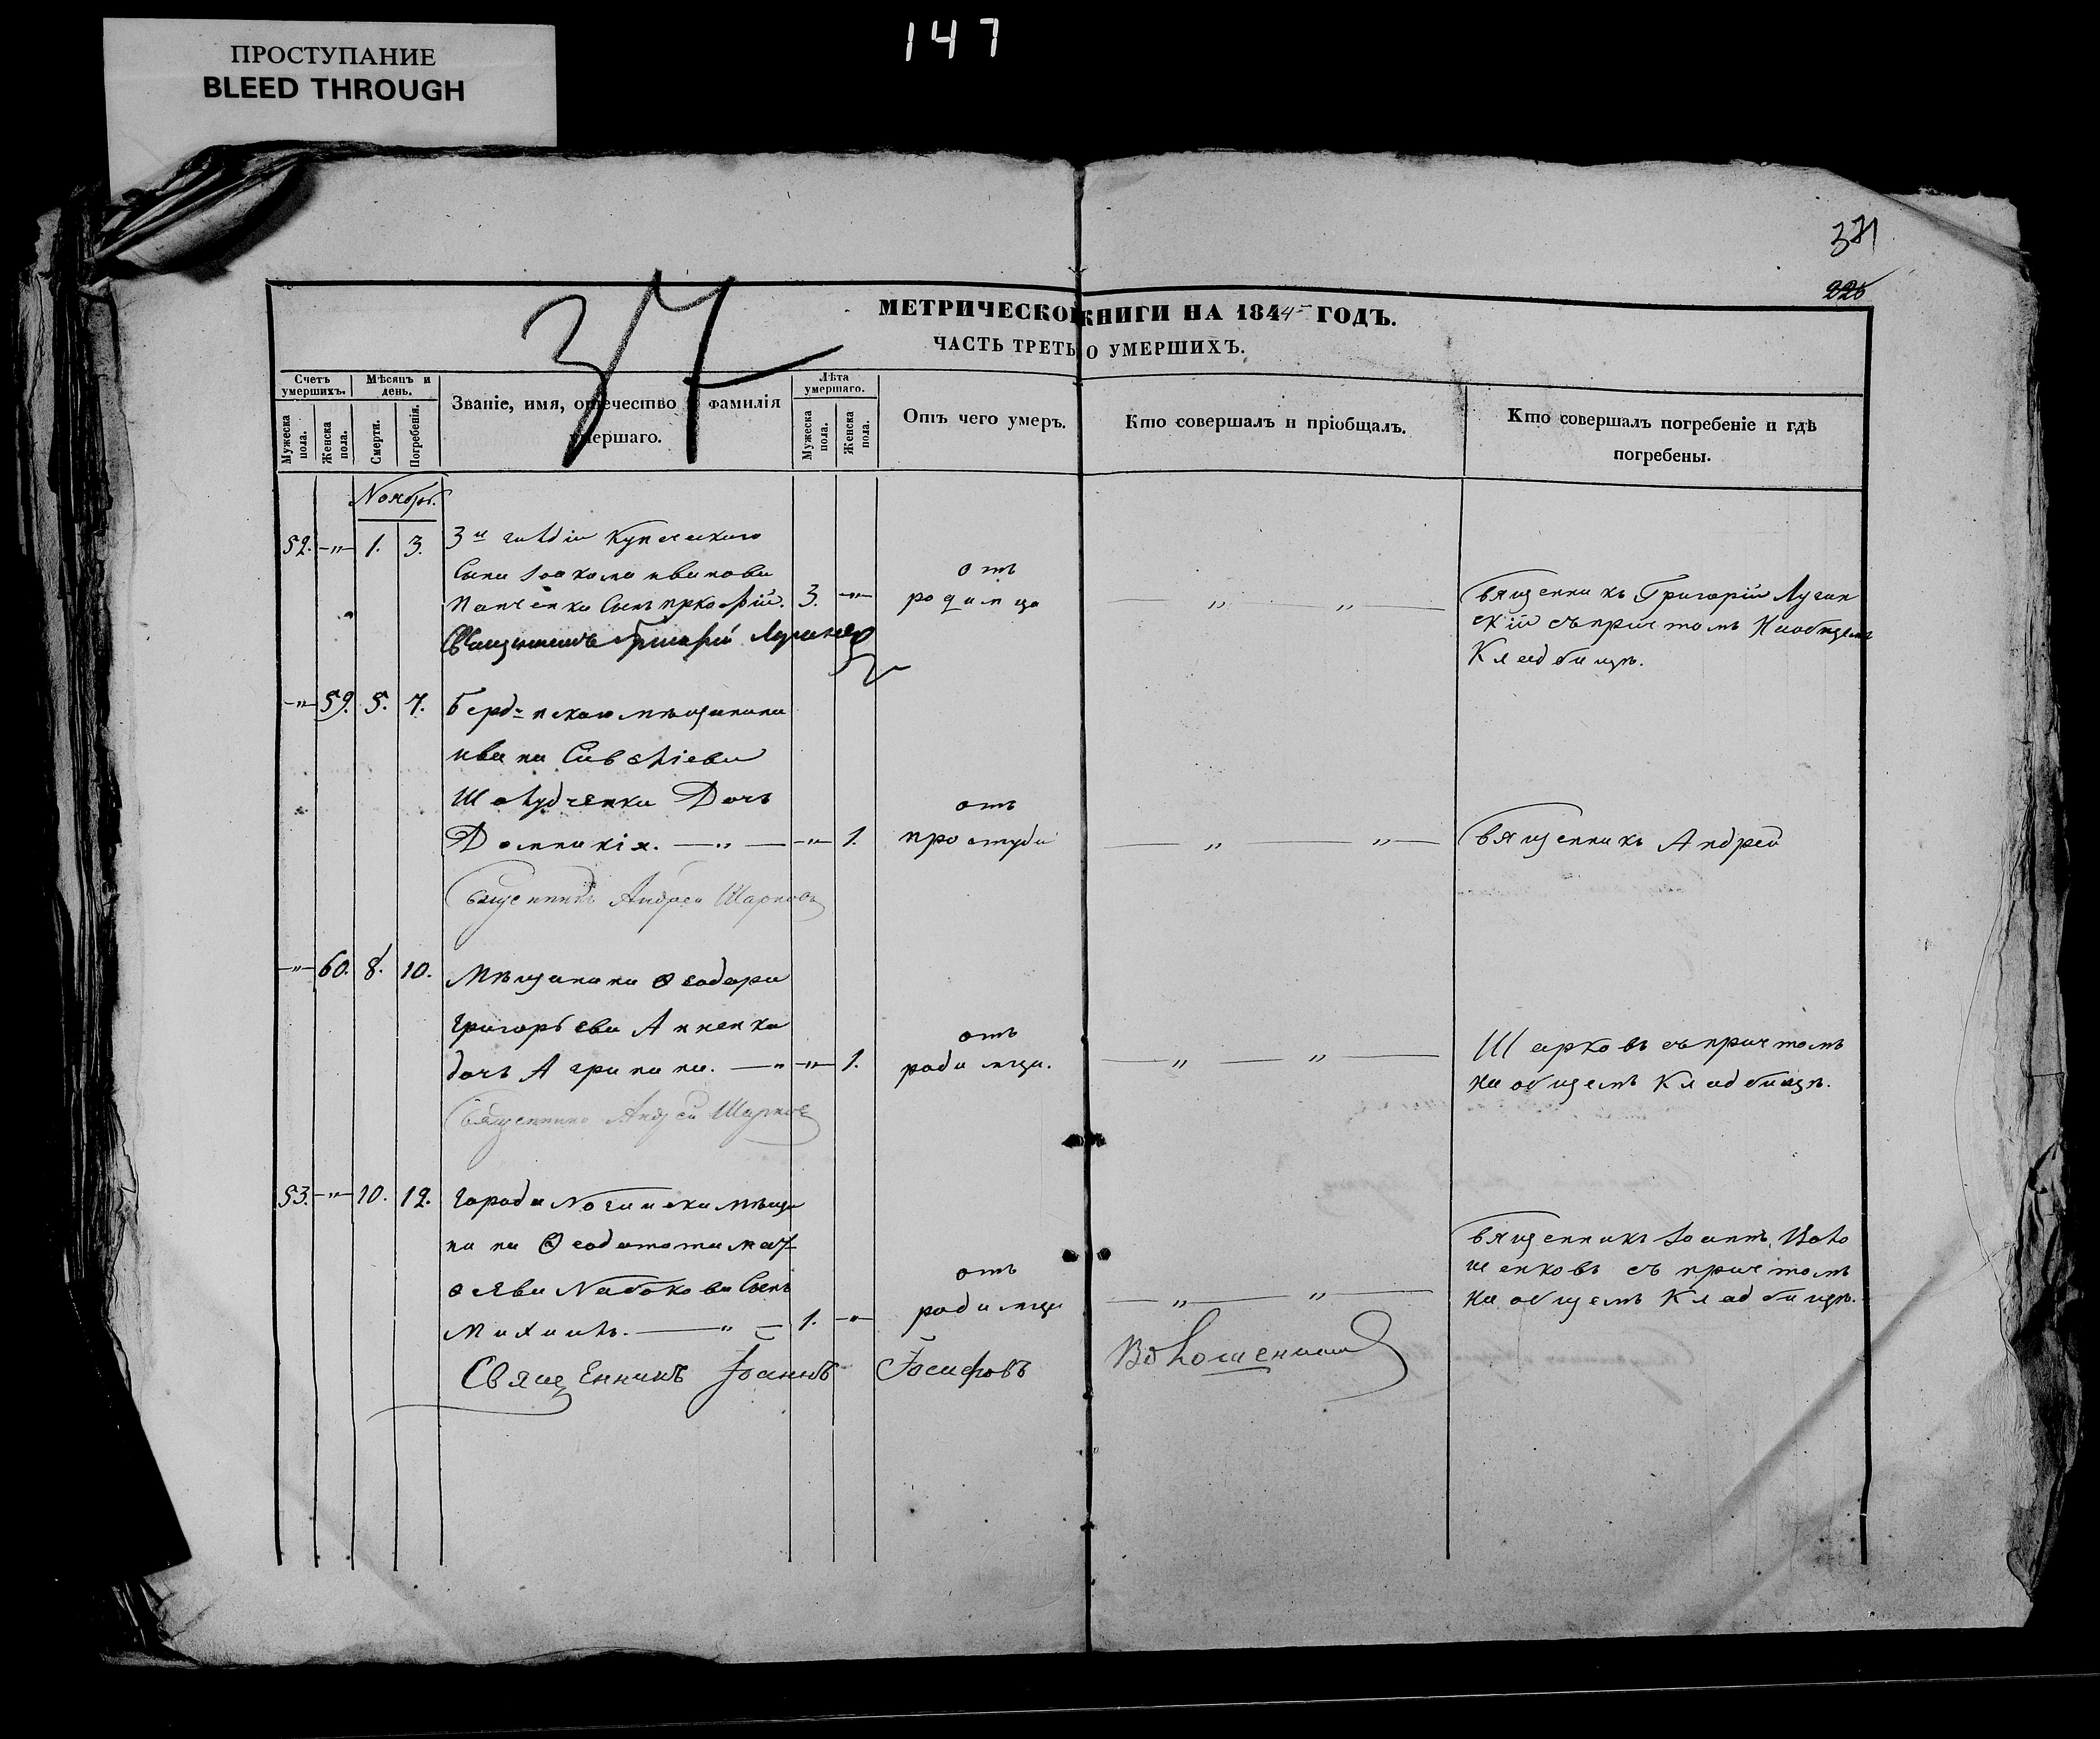 ПРОСТУПАНИЕ
BLEED THROUGH
147
371
226
37
МЕТРИЧЕСКО КНИГИ НА 1844 ГОДЪ.
ЧАСТЬ ТРЕТЬ О УМЕРШИХЪ.
Счетъ умершихъ.
Мѣсяцъ и день.
Званіе, имя, отечество и фамилія умершаго.
Лѣта умершаго.
Отъ чего умеръ.
Кто совершалъ и пріобщалъ.
Кто совершалъ погребеніе и гдѣ погребены.
Мужеска пола.
Женска пола.
Смерти.
Погребенія.
Мужеска пола.
Женска пола.
Ноябрь.
52. —"— 1. 3. 3й гилдіи Купеческаго
Сына Іоакима Иванова отъ
Панченка Сынъ Прокофій. 3. —"— родимца —"— —"— Священникъ Григорій Лучин
скій съ причтомъ На общемъ
Кладбищѣ.
Священникъ Григорій
—"— 59. 5. 7. Берд= нскаго мѣщанина
Ивана Савелiева
Шолудченка Дочь отъ
Домникія. —"— —"— 1. простуды —"— —"— Священникъ Андрей
Священникъ Андрей Шарковъ
—"— 60. 8. 10. Мѣщанина Ѳеодора
Григорьева Анненка отъ
дочь Агрипина. —"— —"— 1. родимца. —"— —"— Шарковъ съ причтомъ
на общемъ Кладбищѣ.
Священникъ Андрей Шарковъ
53. —"— 10. 12. Города Ногайска мѣща
нина Ѳеодота Мат
ѳѣева Набокова Сынъ отъ
Михаилъ. —"— 1. —"— родимца —"— —"— Священникъ Іоаннъ Воло
шенковъ съ причтомъ
На общемъ Кладбищѣ.
Священникъ Іоаннъ Іосифовъ